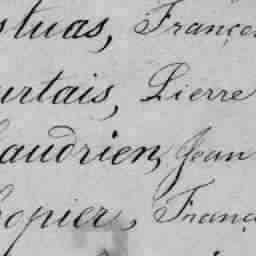 stuas, Franço
urtais, Pierre
audrien, Jean
opier, Franç